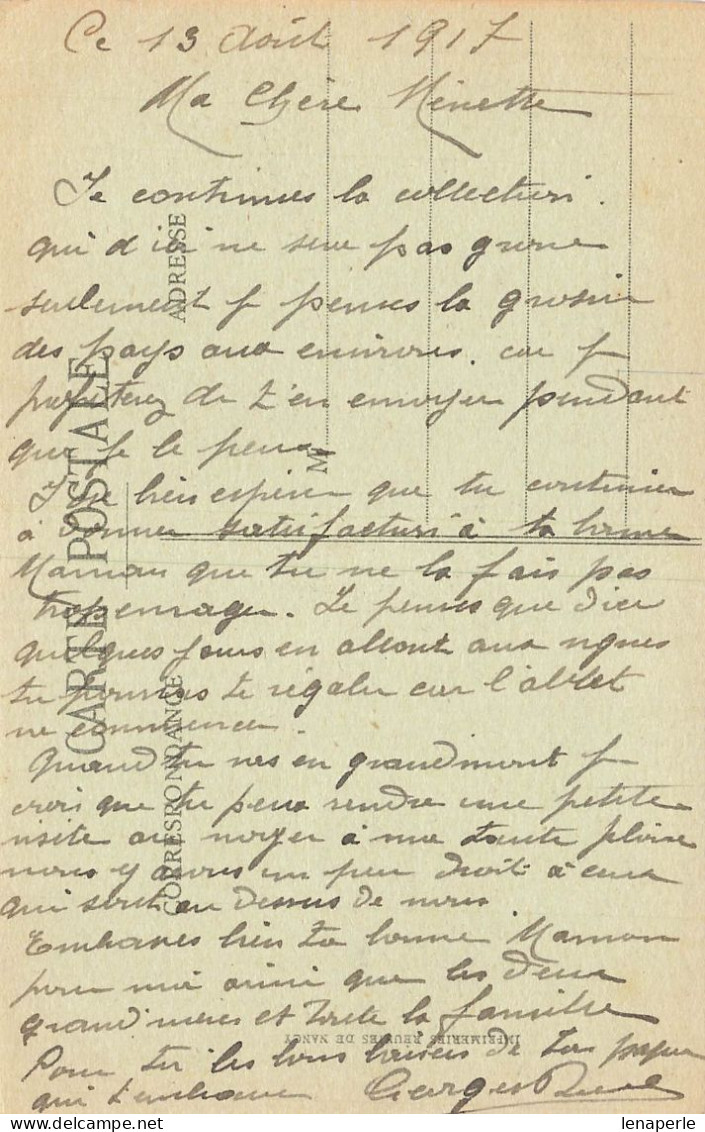 Ce 13 Août 1917
Ma Chère Minette
Je continues la collection.
qui d'ici ne sera pas grosse
seulement j penses la grossir
des pays aux environs. car j
profiterez de t'en envoyer pendant
que je le peux
J'ose bien espérer que tu continues
à donner satisfaction à ta bonne
Maman que tu ne la fais pas
trop enrager. Je penses que d'ici
quelques jours en allant aux vignes
tu pourras te régaler car l'
ne commence.
Quand tu vas en grandmont j
crois que tu peux rendre une petite
visite au noyer à ma tante
nous y avons un peu droit à ceux
qui sont au dessus de nous
Embrasses bien ta bonne Maman
pour moi ainsi que les deux
grand'mères et toute la famille
Pour toi les bons baisers de ton papa
qui t'embrasse Georges
CARTE POSTALE
CORRESPONDANCE
ADRESSE
M
IMPRIMERIES REUNIES DE NANCY
lenaperle